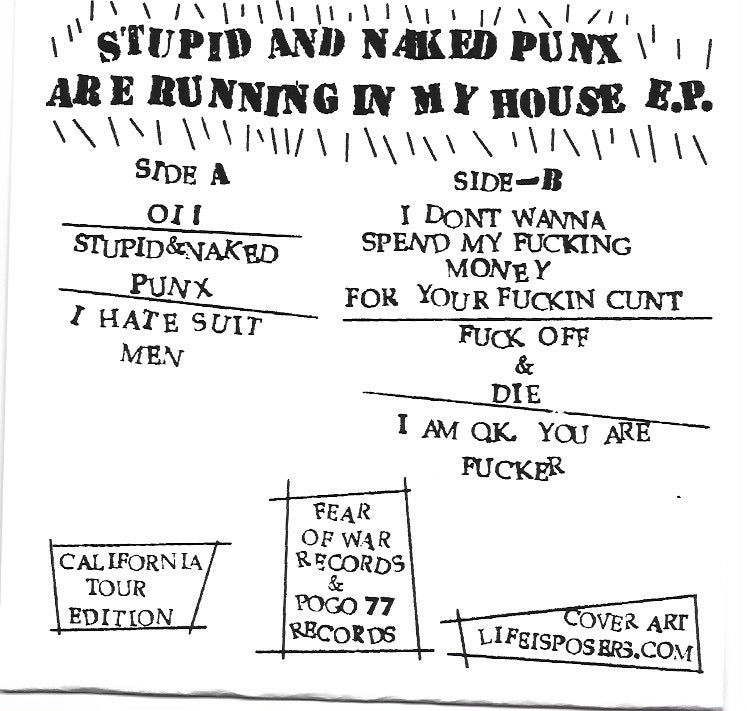 STUPID AND NAKED PUNX
ARE RUNNING IN MY HOUSE E.P.
SIDE A
OI!
STUPID&NAKED
PUNX
I HATE SUIT
MEN
SIDE-B
I DONT WANNA
SPEND MY FUCKING
MONEY
FOR YOUR FUCKIN CUNT
FUCK OFF
&
DIE
I AM O.K. YOU ARE
FUCKER
CALIFORNIA
TOUR
EDITION
FEAR
OF WAR
RECORDS
&
POGO 77
RECORDS
COVER ART
LIFEISPOSERS.COM